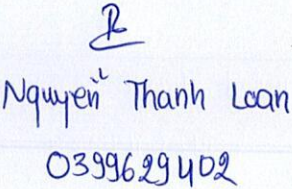 Nguyễn Thanh Loan
0399629402